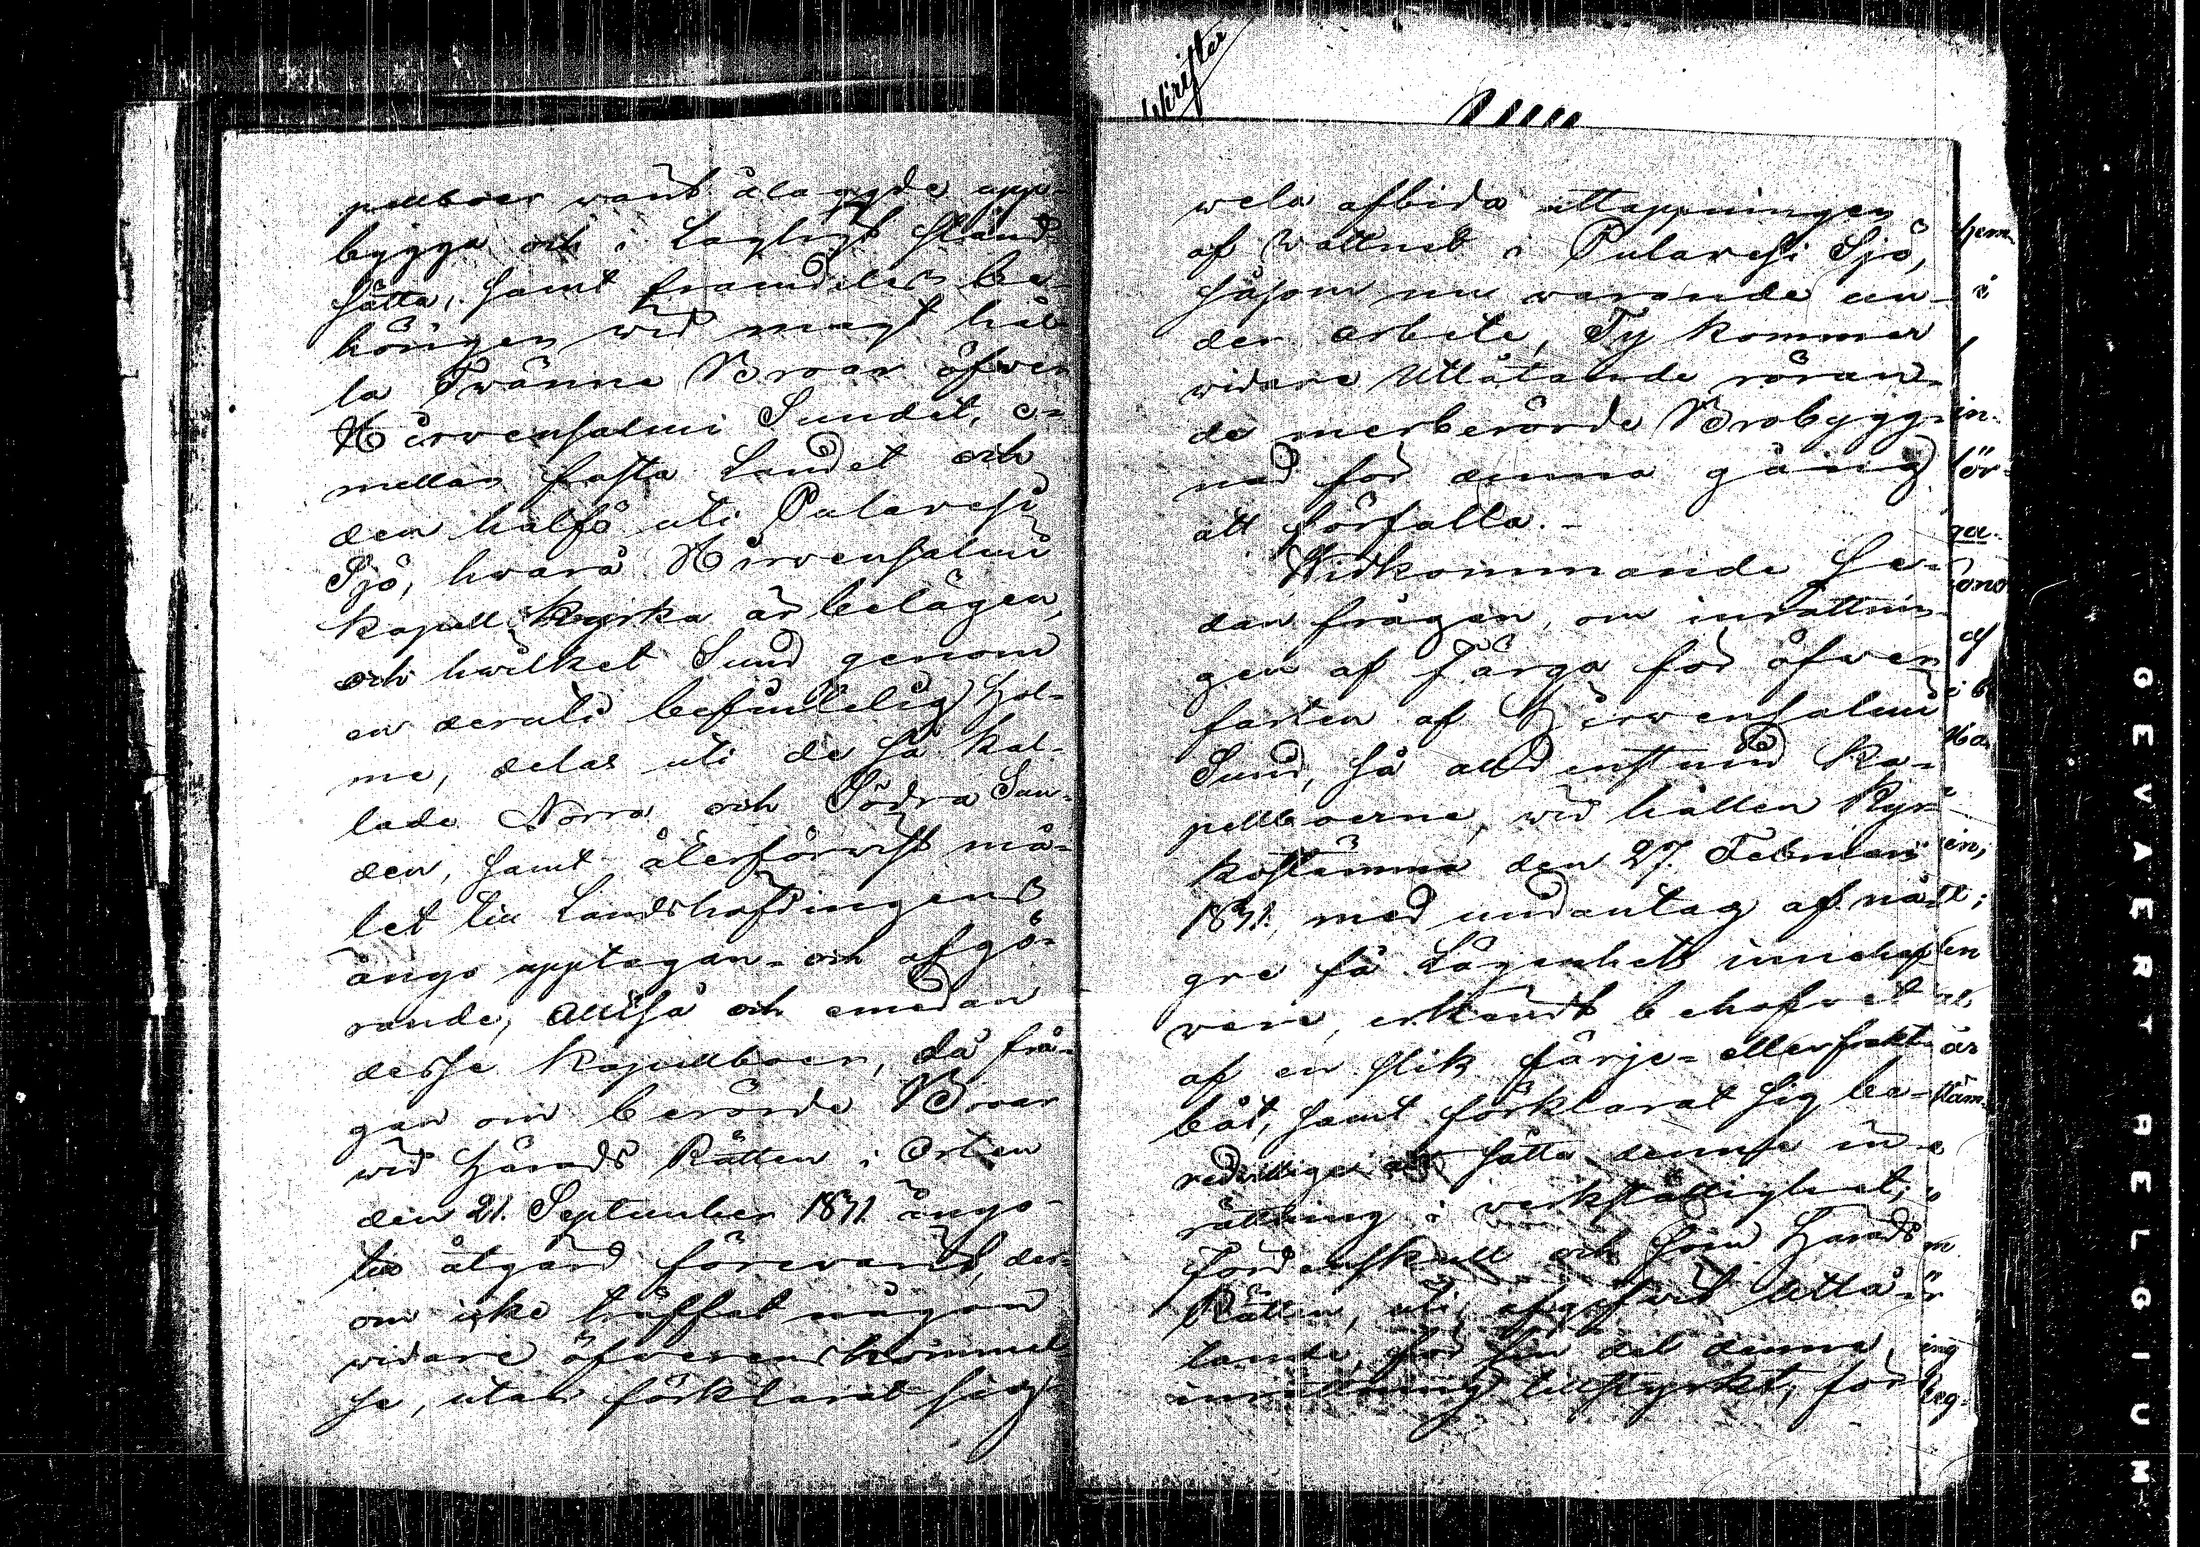 pellboer warit ålagde upp-
bygga och i Lagligt stånd
sätta, samt framdeles be-
hörigen wid magt hål-
la Twänne Broar öfwer
Hirvensalmi Sundet, e-
mellan fasta Landet och
den halfö uti Pulavesi
Sjö, hvarå Hirvensalmi
kapell kyrka är belägen,
och hwilket Sund genom
en deruti befintelig Hol-
me, delas uti de så kal-
lade Norra och Södra Sun-
den, samt återförwist må-
let till Landshöfdingens
ånyo upptagan- och afgö-
rande, Alltså och emedan
desse Kapellboer, då frå-
gan om berörde Broar
wid Härads Rätten i Orten
den 21. September 1871 ånyo
till åtgärd förewarit, der-
om icke träffat någon
widare öfverenskommel-
se, utan förklarat sig
wela afbida uttappningen
af Wattnet i Pulavesi Sjö,
såsom nu warande un-
der arbete, Ty kommer
widare Utlåtande röran-
de merberörde Brobygg-
nad för denna gång
att förfalla.-
Widkommande se-
dan frågan, om inrättnin-
gen af Färga för öfwer
farten af Hirvensalmi
Sund, så alldenstund Ka-
pellboerne, wid hållen Kyr-
kostämma den 27. Februari
1871, med undantag af nå-
gre få Lägenhets innehaf
vare, erkändt behofvet
af en slik färje- eller frakt-
båt, samt förklarat sig be-
redwillige att sätta denne in-
rättning i verkställighet;
Fördenskull och som Härads
Rätten, uti afgifvit Utlå-
tande, för sin del denna
inrättning tillstyrkt, för
hem-
i
in-
för-
af
en
är
ing